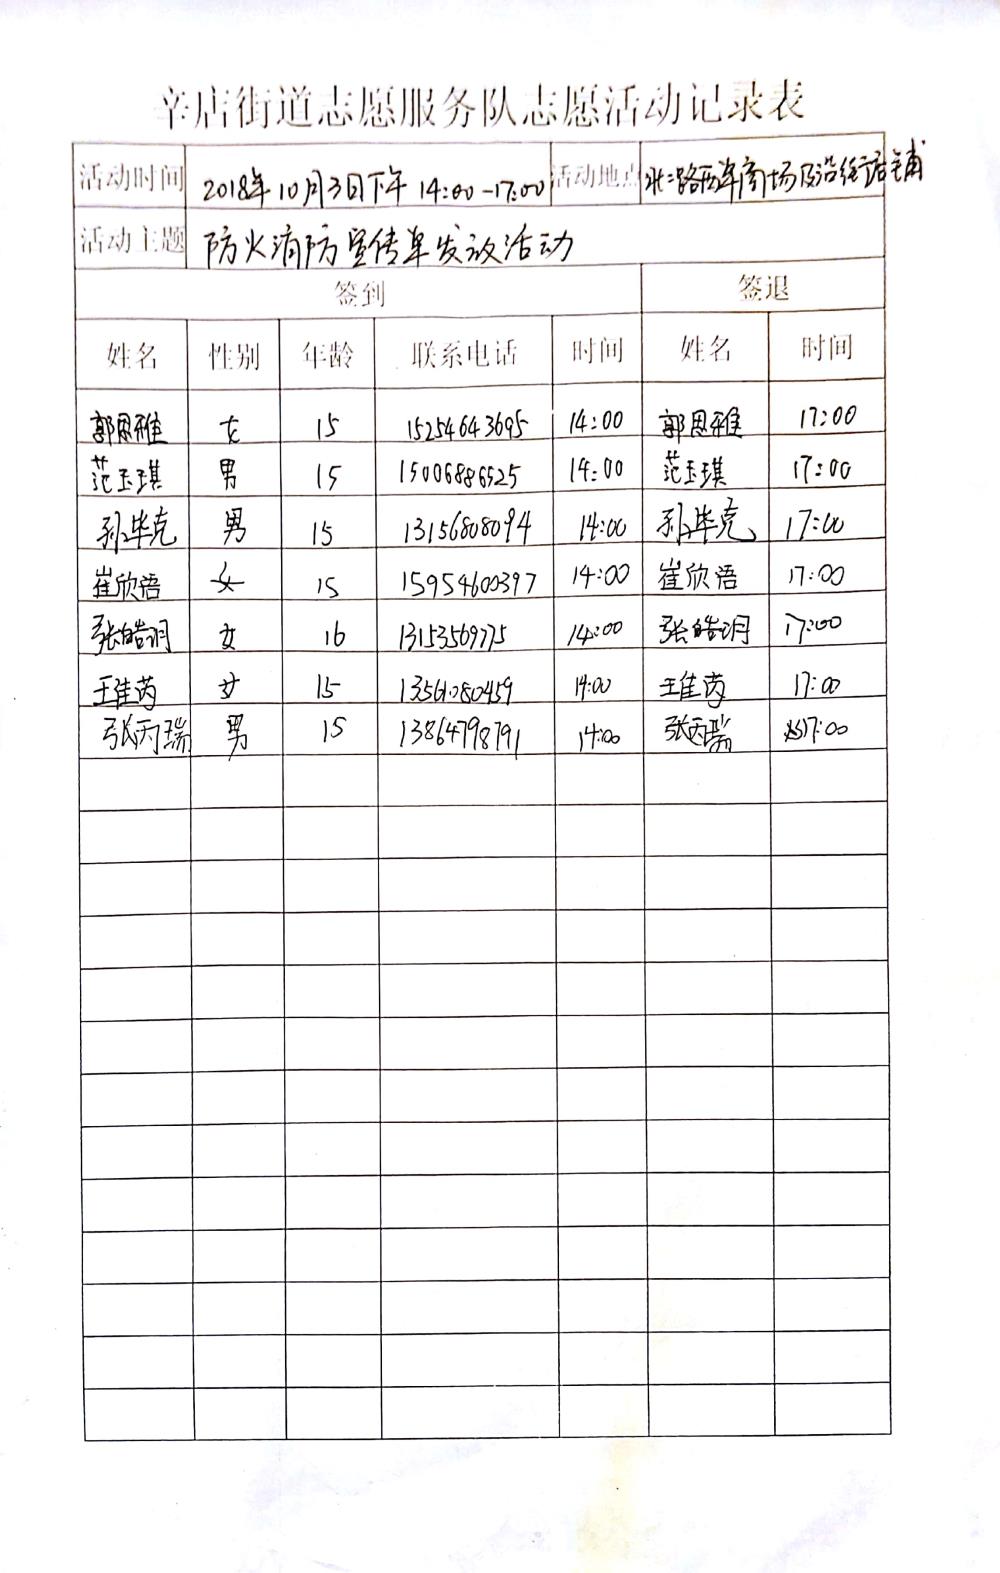 辛店街道志愿服务队志愿活动记录表
活动时间 2018年10月3日下午 14:00-17:00 活动地点 北二路西单商场及沿街店铺
活动主题 防火消防宣传单发放活动
签到 签退
姓名 性别 年龄 联系电话 时间 姓名 时间
郭恩雅 女 15 15254643695 14:00 郭恩雅 17:00
范玉琪 男 15 15006886525 14:00 范玉琪 17:00
孙毕克 男 15 13156808094 14:00 孙毕克 17:00
崔欣语 女 15 15954600397 14:00 崔欣语 17:00
张皓玥 女 16 13153569775 14:00 张皓玥 17:00
王佳芮 女 15 13561080459 14:00 王佳芮 17:00
张丙瑞 男 15 13864798791 14:00 张丙瑞 17:00